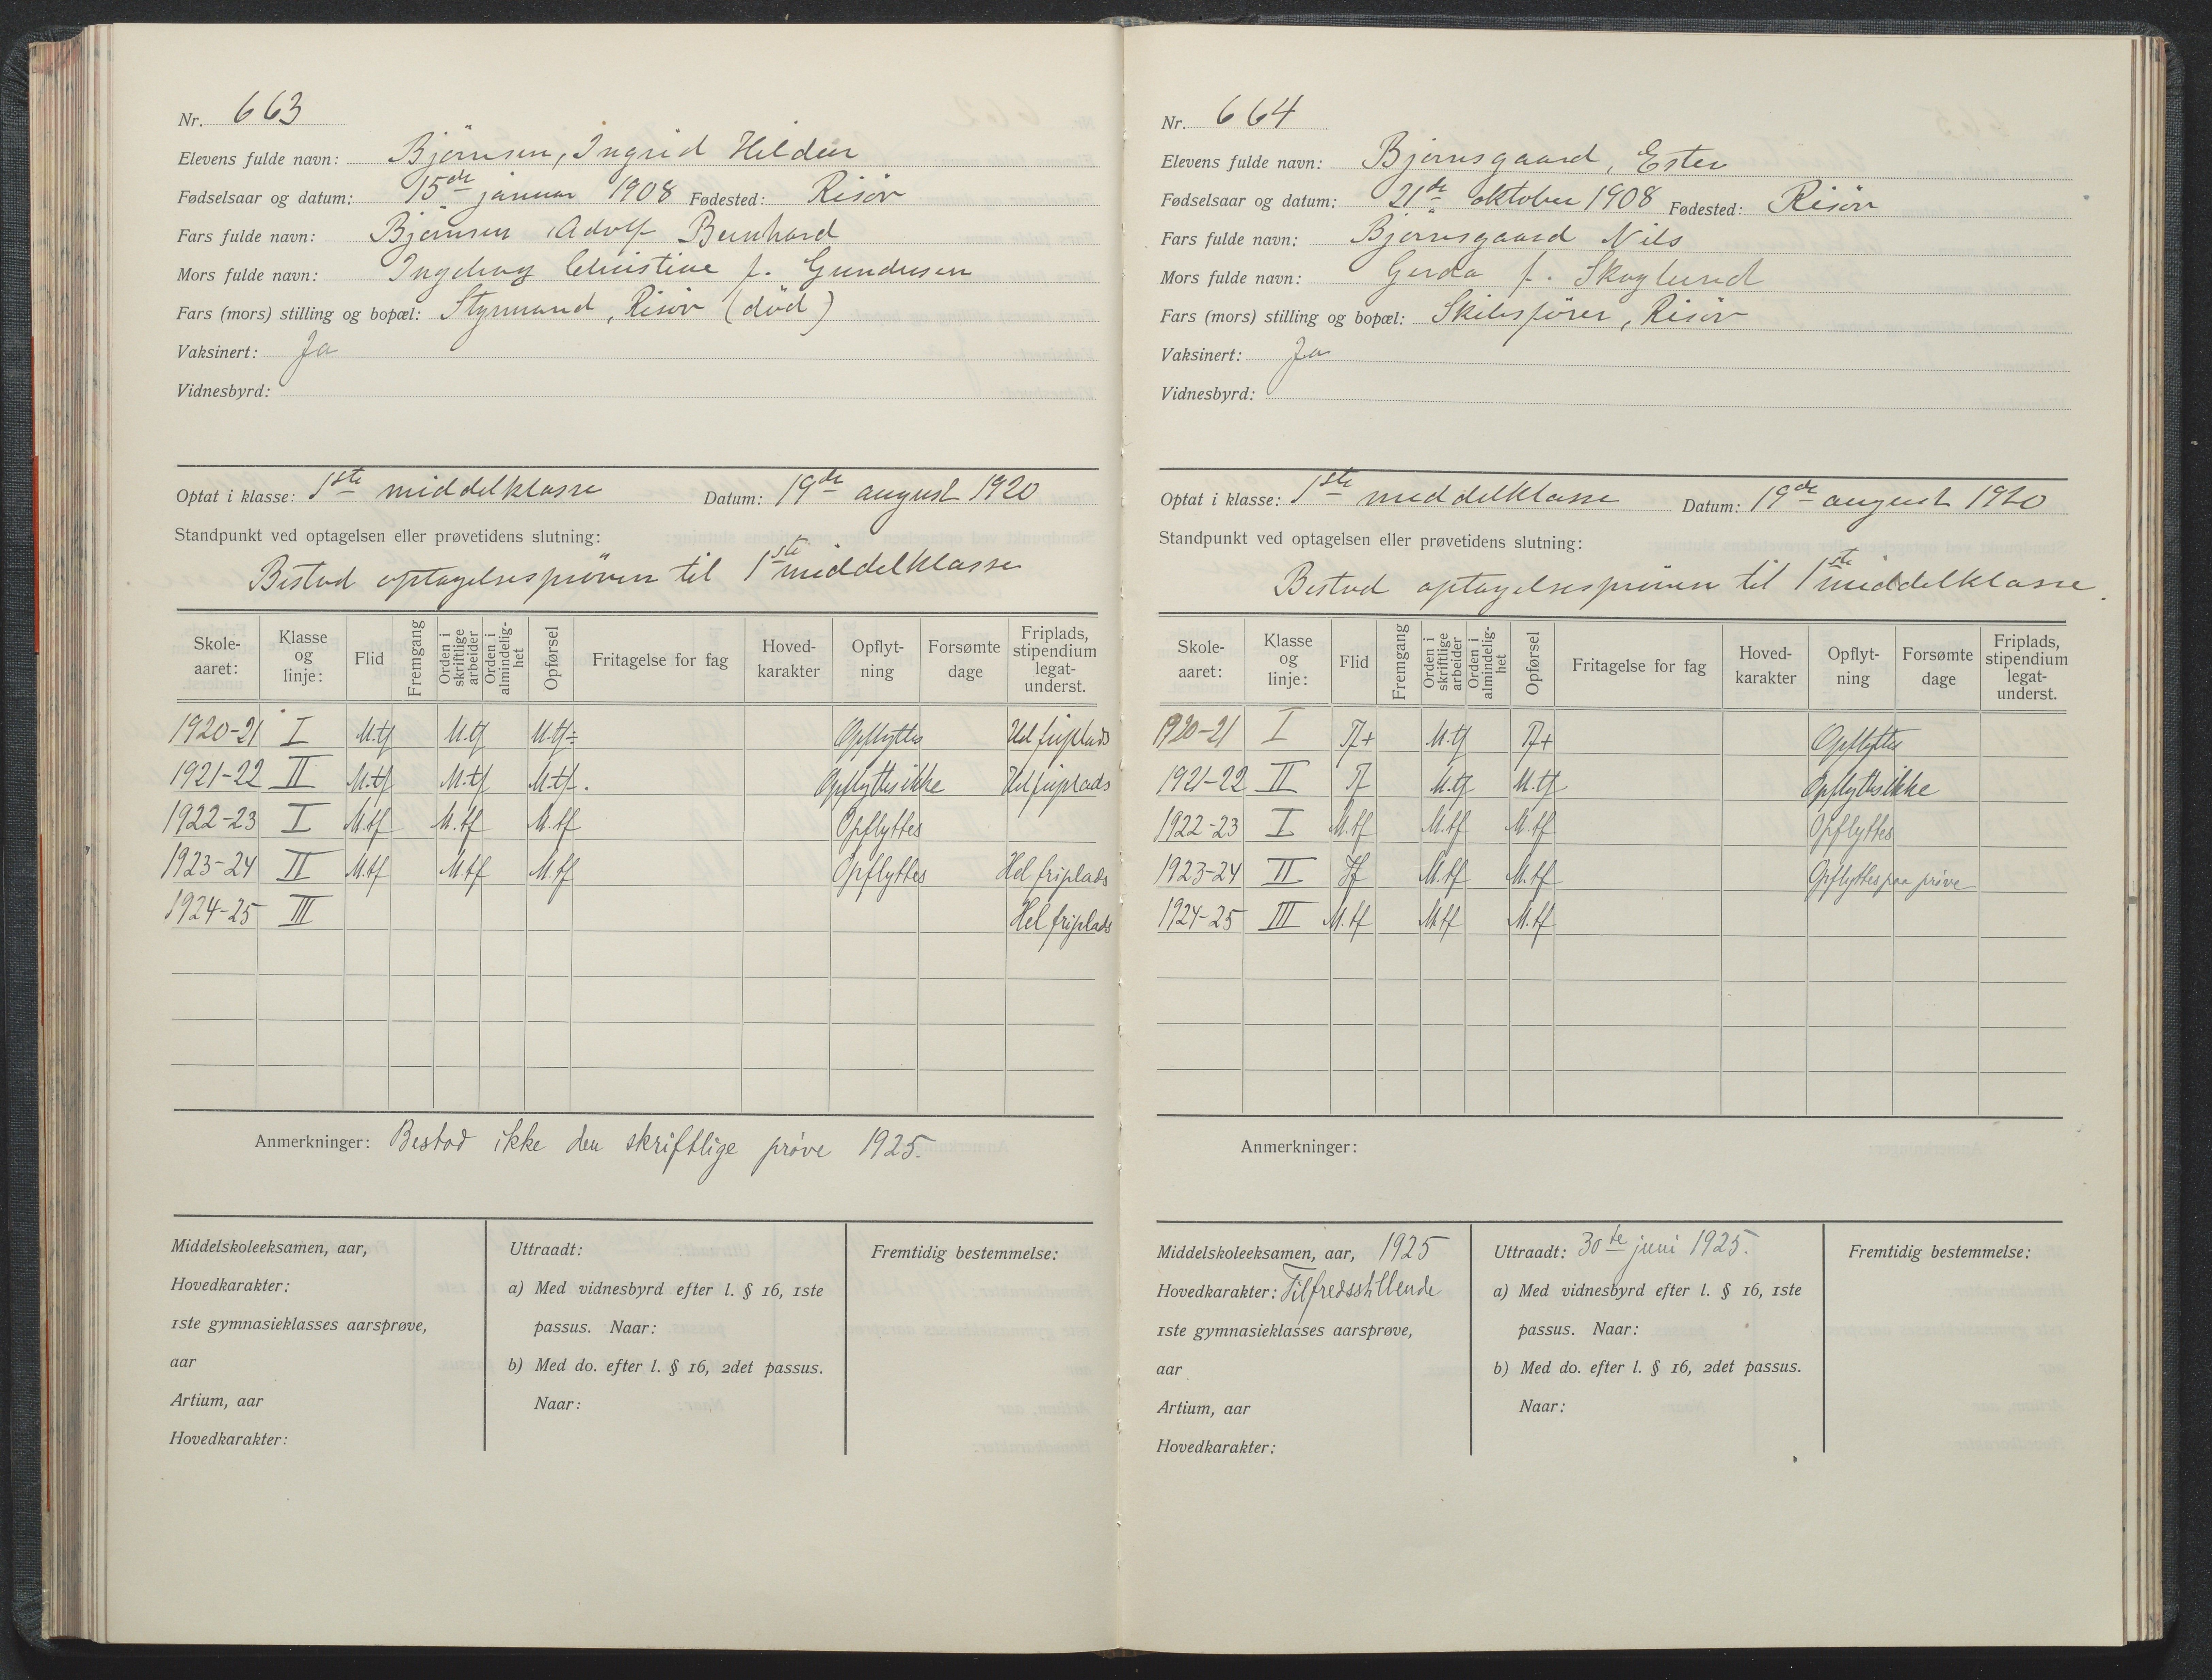 Nr. 663
Elevens fulde navn: Bjørnsen, Ingrid Hildur
Fødselsaar og datum: 15de januar 1908 Fødested: Risør
Fars fulde navn: Bjørnsen Adolf Bernhard
Mors fulde navn: Ingeborg Christine f. Gundersen
Fars (mors) stilling og bopæl: Styrmand, Risør (død)
Vaksinert: Ja
Vidnesbyrd:
Optat i klasse: 1ste middelklasse Datum: 19de august 1920
Standpunkt ved optagelsen eller prøvetidens slutning:
Bestod optagelsesprøven til 1ste middelklasse
Skoleaaret: Klasse og linje: Flid Fremgang Orden i skriftlige arbeider Orden i almindelighet Opførsel Fritagelse for fag Hovedkarakter Opflytning Forsømte dage Friplads, stipendium legat-underst.
1920-21 I M.tf M.tf M.tf÷ Opflyttes Hel friplads
1921-22 II M.tf M.tf M.tf. Opflyttes ikke Hel friplads
1922-23 I M.tf M.tf M.tf Opflyttes
1923-24 II M.tf M.tf M.tf Opflyttes Hel friplads
1924-25 III Hel friplads
Anmerkninger: Bestod ikke den skriftlige prøve 1925.
Middelskoleeksamen, aar,
Hovedkarakter:
1ste gymnasieklasses aarsprøve,
aar
Artium, aar
Hovedkarakter:
Uttraadt:
a) Med vidnesbyrd efter l. § 16, 1ste
passus. Naar:
b) Med do. efter l. § 16, 2det passus.
Naar:
Fremtidig bestemmelse:
Nr. 664
Elevens fulde navn: Bjørnsgaard, Ester
Fødselsaar og datum: 21de oktober 1908 Fødested: Risør
Fars fulde navn: Bjørnsgaard Nils
Mors fulde navn: Gerda f. Skoglund
Fars (mors) stilling og bopæl: Skibsfører, Risør
Vaksinert: Ja
Vidnesbyrd:
Optat i klasse: 1ste middelklasse Datum: 19de august 1920
Standpunkt ved optagelsen eller prøvetidens slutning:
Bestod optagelsesprøven til 1ste middelklasse.
Skoleaaret: Klasse og linje: Flid Fremgang Orden i skriftlige arbeider Orden i almindelighet Opførsel Fritagelse for fag Hovedkarakter Opflytning Forsømte dage Friplads, stipendium legat-underst.
1920-21 I Tf+ M.tf Tf+ Opflyttes
1921-22 II Tf M.tf M.tf Opflyttes ikke
1922-23 I M.tf M.tf M.tf Opflyttes
1923-24 II Tf M.tf M.tf Opflyttes paa prøve
1924-25 III M.tf M.tf M.tf
Anmerkninger:
Middelskoleeksamen, aar, 1925
Hovedkarakter: Tilfredsstillende
1ste gymnasieklasses aarsprøve,
aar
Artium, aar
Hovedkarakter:
Uttraadt: 30te juni 1925.
a) Med vidnesbyrd efter l. § 16, 1ste
passus. Naar:
b) Med do. efter l. § 16, 2det passus.
Naar:
Fremtidig bestemmelse: